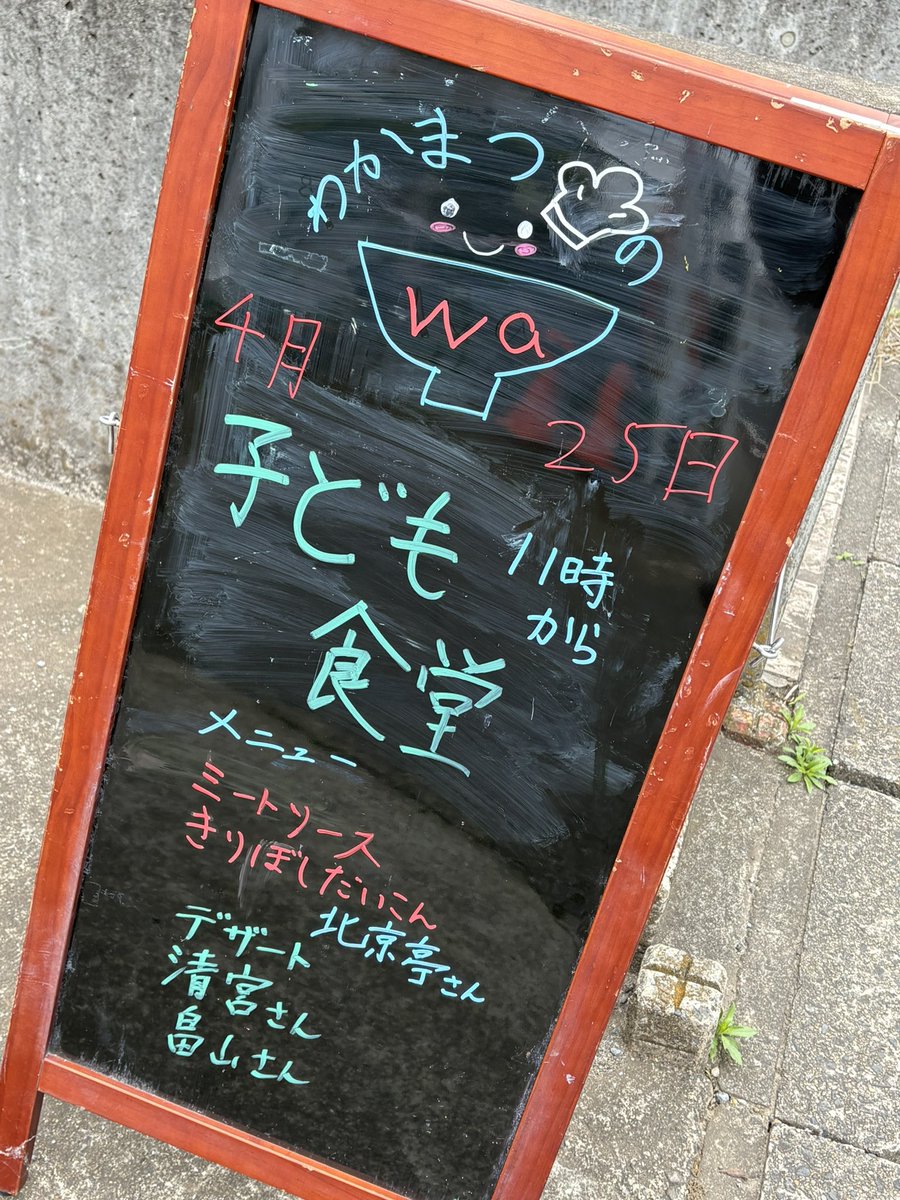 わかまつの
wa
4月
25日
子ども
食堂
11時
から
メニュー
ミートソース
きりぼしだいこん
北京亭さん
デザート
清宮さん
畠山さん